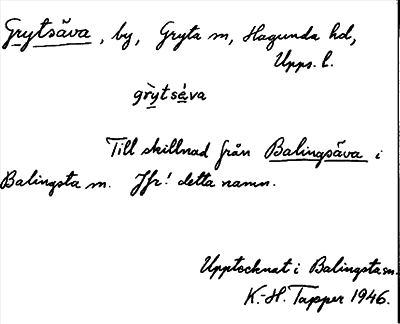 Grytsäva, by, Gryta sn, Hagunda hd,
Upps. l.
grỳtsáva
Till skillnad från Balingsäva i
Balingsta sn. Jfr! detta namn.
Upptecknat i Balingsta sn.
K.-H. Tapper 1946.